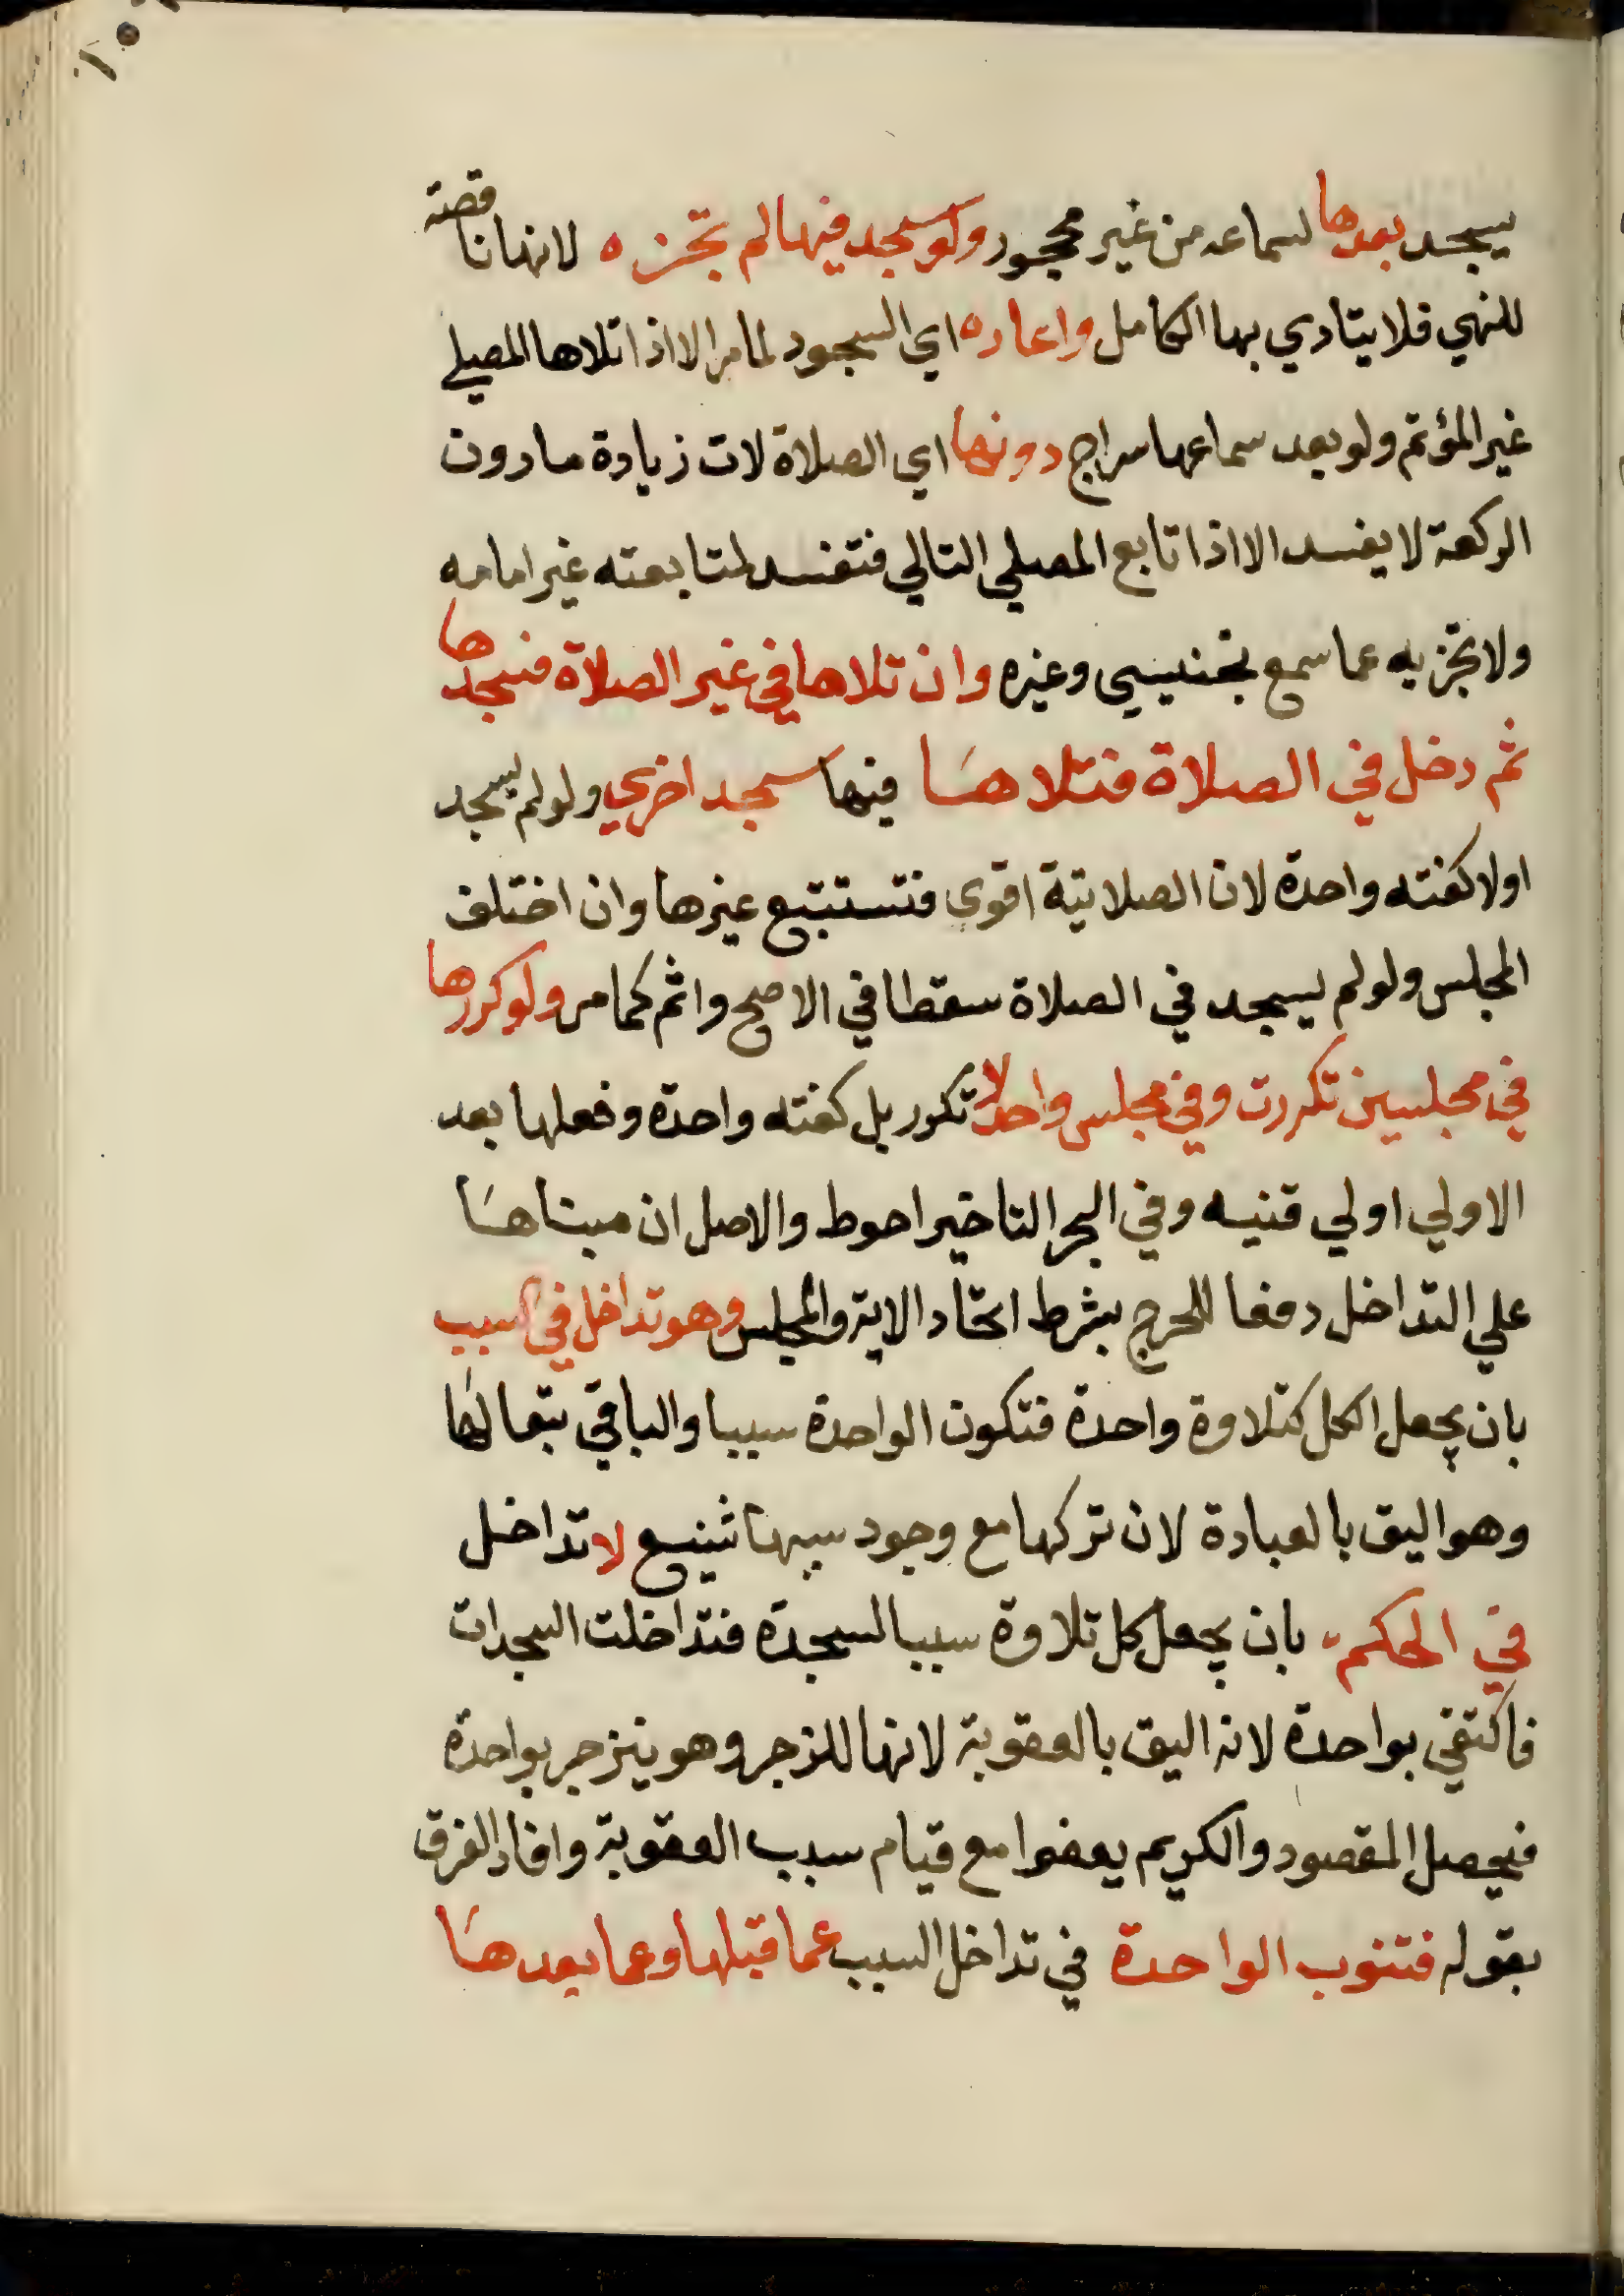 يسجد بعدها لسماعه من غير محجور ولو سجد فيها لم تجزه لانها ناقصة
للنهي فلا يتادي بها الكامل واعاده اي السجود لما مر الا اذا تلاها المصلي
غير المؤتم ولو بعد سماعها سراج دونها اي الصلاة لان زيادة ما دون
الركعة لا يفسد الا اذا تابع المصلي التالي فتفسد لمتابعته غير امامه
ولا تجزيه عما سمع تجنيس وغيره وان تلاها في غير الصلاة فسجدها
ثم دخل في الصلاة فتلاها فيها سجد اخري ولو لم يسجد
اولا كفته واحدة لان الصلاتية اقوي فتستتبع غيرها وان اختلف
المجلس ولو لم يسجد في الصلاة سقطا في الاصح واثم كما مر ولو كررها
في مجلسين تكررت وفي مجلس واحد لا تكرر بل كفته واحدة وفعلها بعد
الاولي اولي قنيه وفي البحر التاخير احوط والاصل ان مبناها
علي التداخل دفعا للحرج بشرط اتحاد الاية والمجلس وهو تداخل في السبب
بان يجعل الكل كتلاوة واحدة فتكون الواحدة سببا والباقي تبعا لها
وهو اليق بالعبادة لان تركها مع وجود سببها شنيع لا تداخل
في الحكم بان يجعل كل تلاوة سببا لسجدة فتداخلت السجدات
فاكتفي بواحدة لانه اليق بالعقوبة لانها للزجر وهو ينزجر بواحدة
فيحصل المقصود والكريم يعفوا مع قيام سبب العقوبة وافاد الفرق
بقوله فتنوب الواحدة في تداخل السبب عما قبلها وعما بعدها